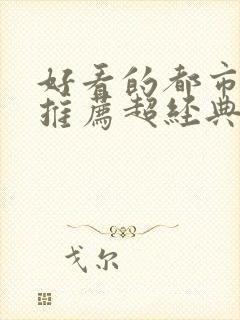 好看的都市
推薦超經典
戈尔